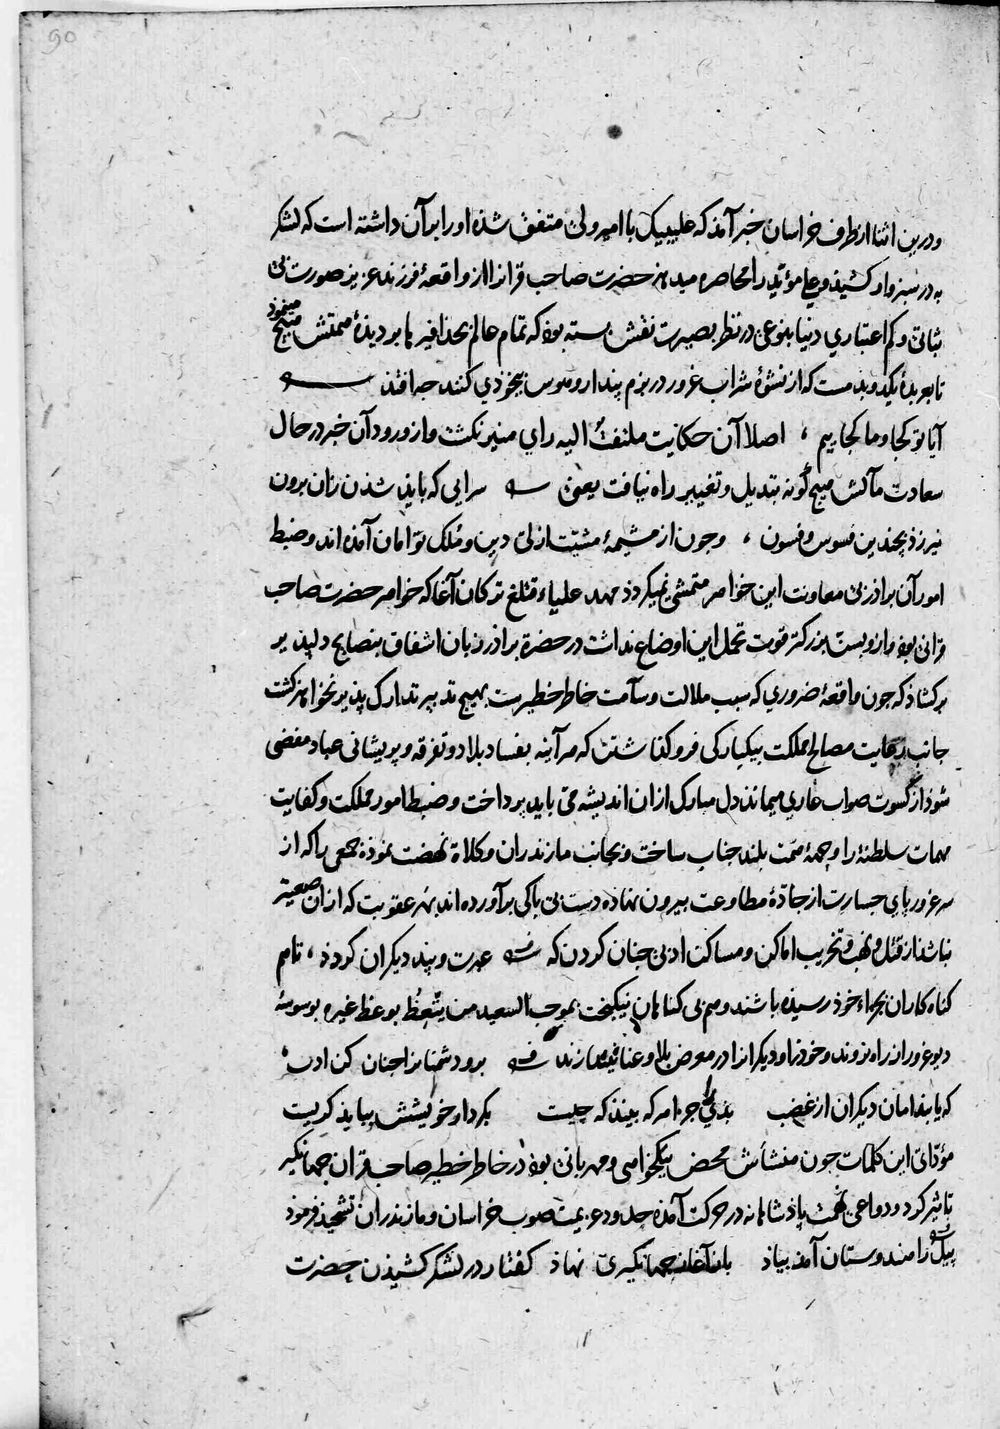 90
ودرین اثنا از طرف خراسان خبر آمد که علیبیک با امیر ولی متفق شده او را بر آن داشته است که لشکر
به در سبزوار کشیذ و علی مؤید را محاصره میدهد حضرت صاحب قرانرا از واقعهٔ فرزند عزیز صورت بی
ثباتی و کم اعتباری دنیا بنوعی در نظر بصیرت نقش بسته بوذ که تمام عالم بحذافیرها بر دیدهٔ همتش هیچ مینموذ
تا بعربدهٔ یکدو بذمست که از نشوهٔ شراب غرور در بزم پندار و هوس بیخوذی کنند چه افتذ
آیا تو کجا و ما کجاییم ، اصلا آن حکایت ملتفتٌ الیه رای منیر نکشت و از ورود آن خبر در حال
سعادت مآلش هیچ گونه تبدیل و تغییر راه نیافت یعنی سرایی که باید شدن زان برون
نیرزذ بچندین فسوس و فسون ، وچون از مشیمهٔ مشیّت ازلی دین و مُلک توامان آمذه اند و ضبط
امور آن براذر بی معاونت این خواهر متمشی نمیکردذ مهد علیاء قتلغ ترکان آغا که خواهر حضرت صاحب
قرانی بوذ و ازو بسنّ بزرکتر قوت تحمل این اوضاع نداشت در حضرة براذر زبان اشفاق بنصایح دلپذیر
برکشاذ که چون واقعهٔ ضروری که سبب ملالت و سآمت خاطر خطیرست بهیچ تدبیر تدارک پذیر نخواهذ کشت
جانب رعایت مصالح مملکت بیکبارکی فرو کذاشتن که هرآینه بفساد بلاد و تفرقه و پریشانی عباد مفضی
شوذ از کسوت صواب عاری میماند دل مبارک از ان اندیشه می باید پرداخت و ضبط امور مملکت و کفایت
مهمات سلطنة را وجههٔ همت بلند جناب ساخت و بجانب مازندران و کلاة نهضت نموذه جمعی را که از
سر غرور پای جسارت از جادهٔ مطاوعت بیرون نهاده دست بی باکی برآورده اند بهر عقوبت که از ان صعبتر
نباشد از قتل و نهب و تخریب اماکن و مساکن ادبی چنان کردن که عبرت و پند دیکران کردذ ، تا هم
کناه کاران بجزاء خوذ رسیذه باشند و هم بی کناهان نیکبخت بموجب السعید من یتّعظُ بوعظ غیره بوسوسهٔ
دیو غرور از راه نروند و خوذ را و دیکرانرا در معرض بلا و عنا نیندازند برو دشمنانرا چنان کن ادب
که یابند امان دیکران از غضب بذی را جزا هر که بیند که چیست بکردار خویشش بباید کریست
مؤدّای این کلمات چون منشأش محض نیکخواهی و مهربانی بوذ در خاطر خطیر صاحبقران جهانکیر
تاثیر کرد و دواعی همّت پاذشاهانه در حرکت آمذه جدود عزیمت صوب خراسان و مازندران تشحیذ فرموذ
پیل را هندوستان آمد بیاذ باز آغاز جهانکیری نهاذ کفتار در لشکر کشیذن حضرت